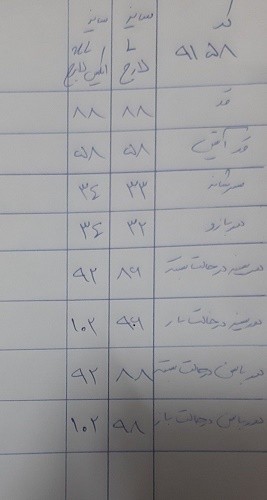 کد
۹۱۵۸
سایز
L
لارج
سایز
ایکس لارج
قد ۸۸ ۸۸
قد آستین ۵۸ ۵۸
سرشانه ۳۳ ۳۴
دور بازو ۳۲ ۳۴
دور سینه در حالت بسته ۸۶ ۹۲
دور سینه در حالت باز ۹۶ ۱۰۲
دور باسن در حالت بسته ۸۸ ۹۲
دور باسن در حالت باز ۹۸ ۱۰۲